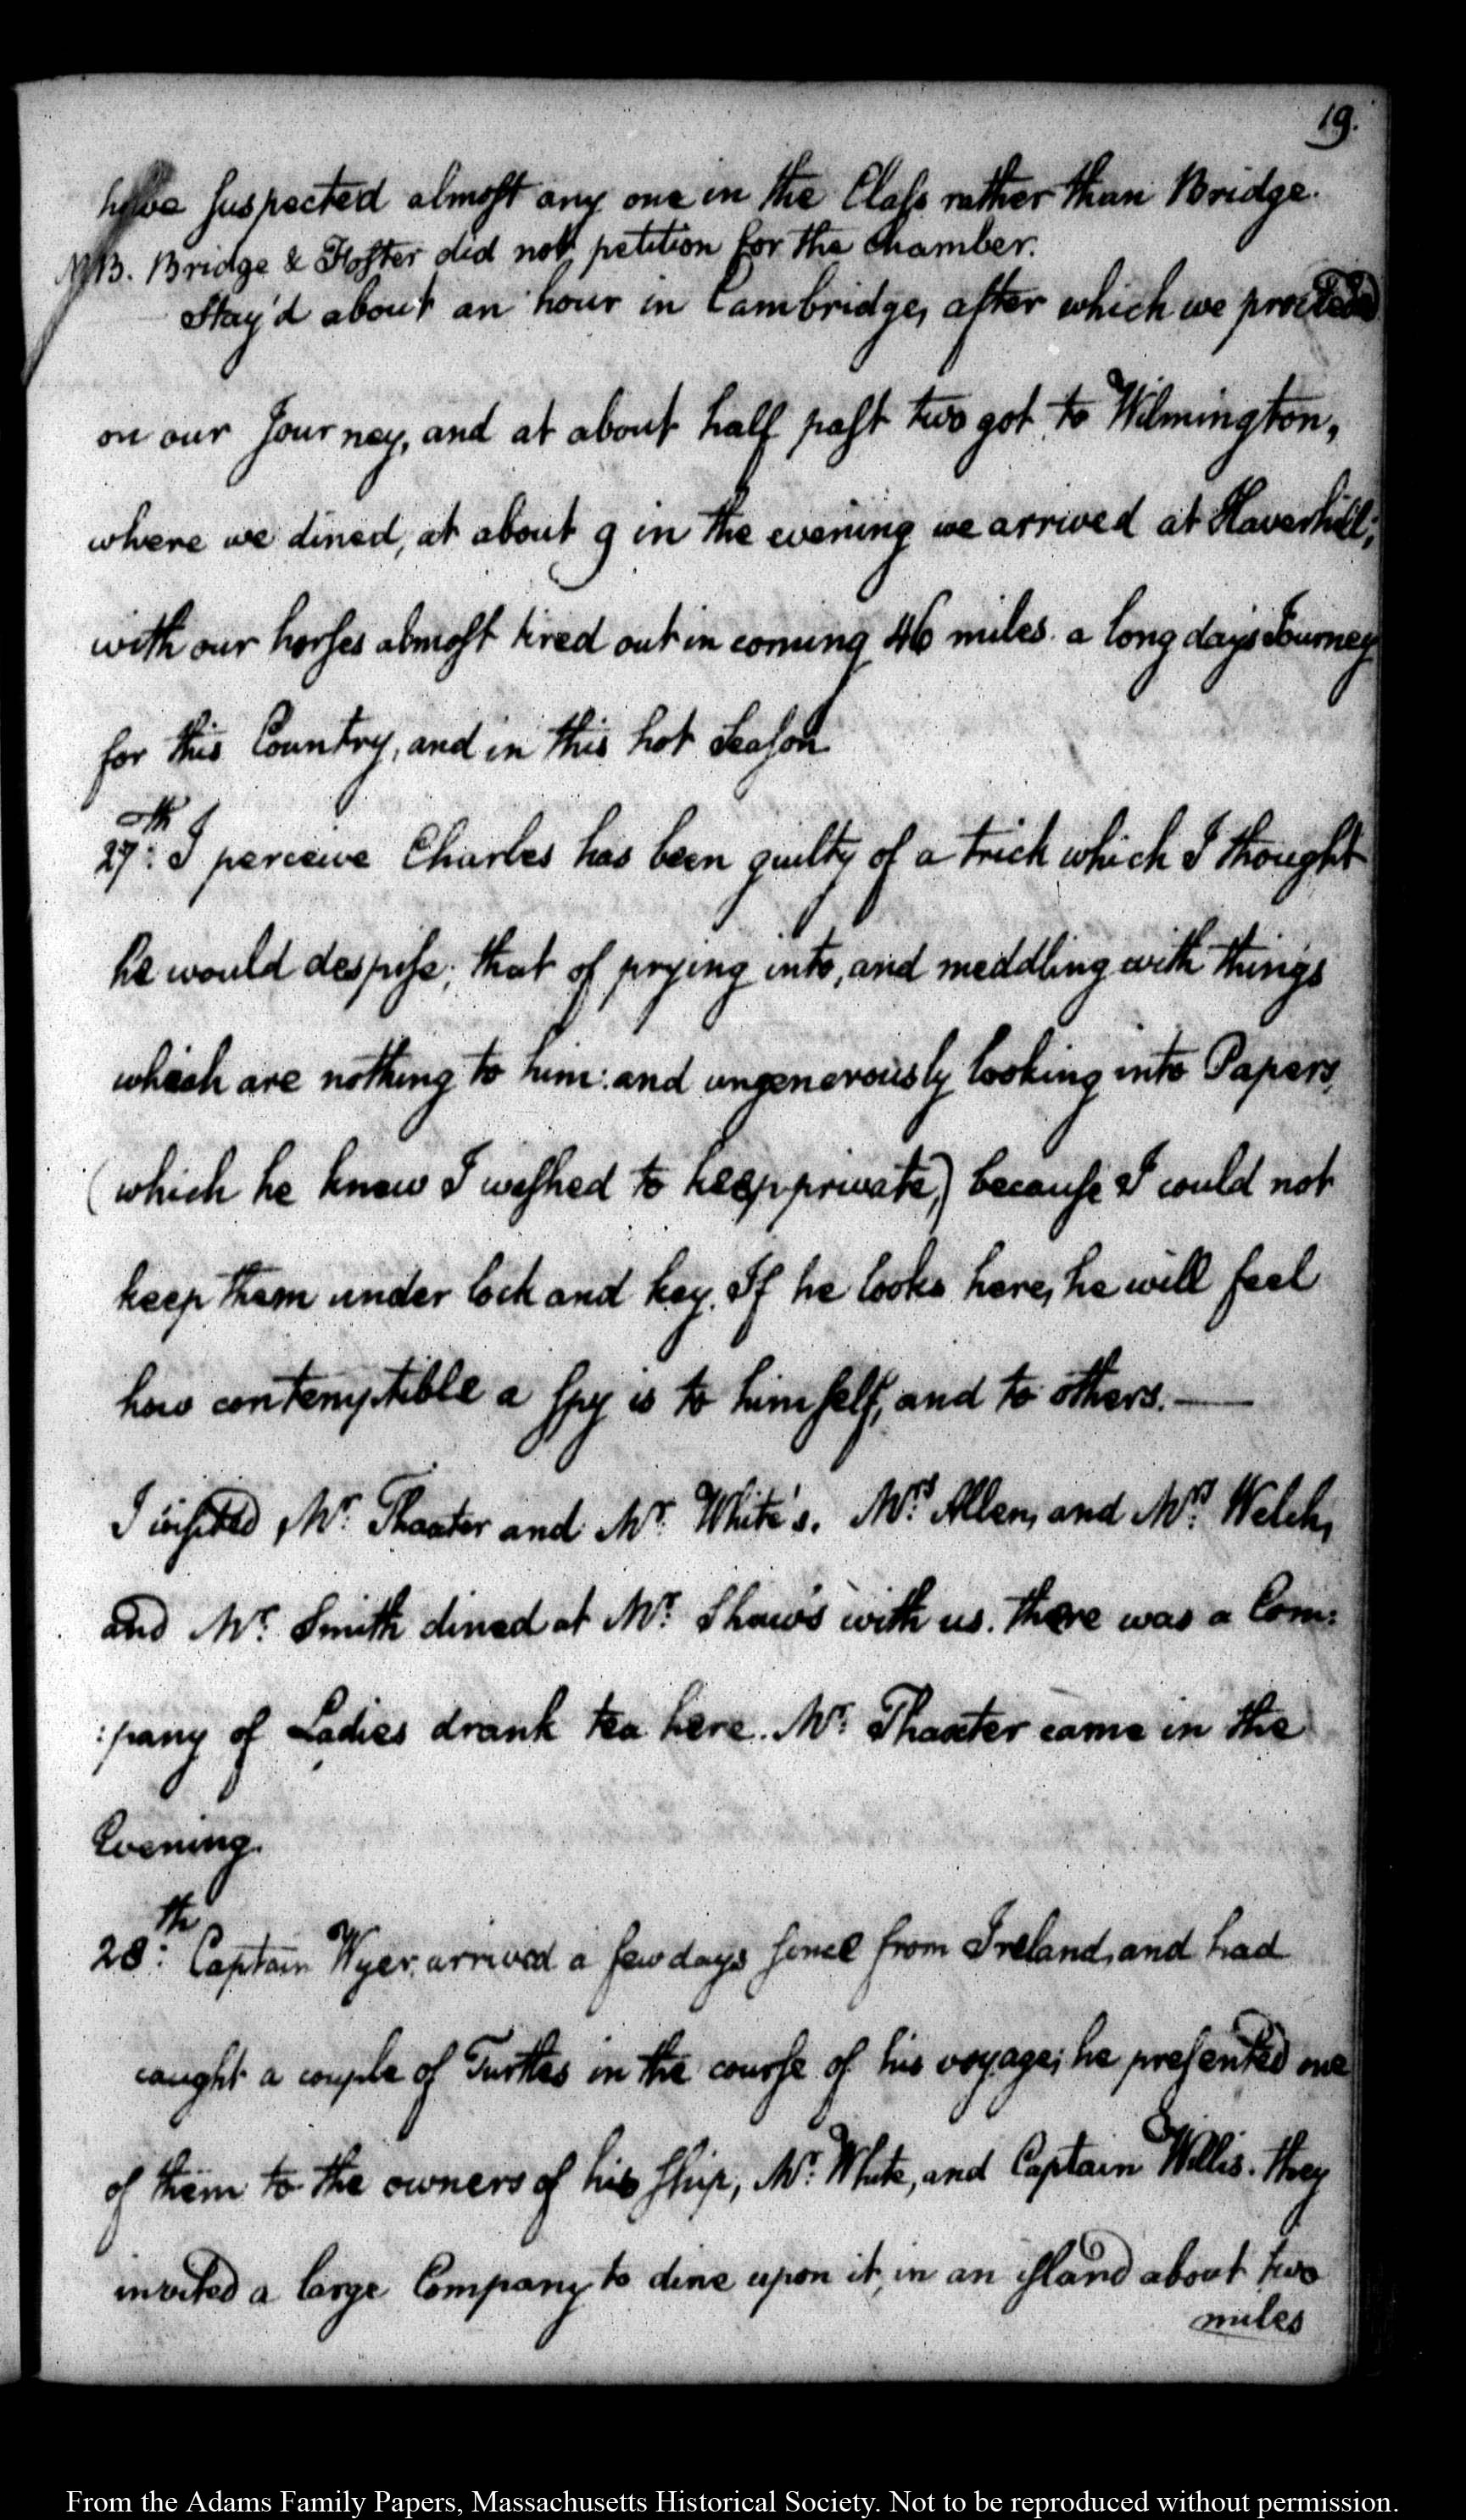 19.
have suspected almost any one in the Class rather than Bridge.
NB. Bridge & Foster did not petition for the chamber.
Stay'd about an hour in Cambridge, after which we proceeded
on our Journey, and at about half past two got to Wilmington,
where we dined, at about 9 in the evening we arrived at Haverhill;
with our horses almost tired out in coming 46 miles. a long days Journey
for this Country, and in this hot Season
27th: I perceive Charles has been guilty of a trick which I thought
he would despise; that of prying into, and meddling with things
which are nothing to him: and ungenerously looking into Papers,
(which he knew I wished to keep private,) because I could not
keep them under lock and key. If he looks here, he will feel
how contemptible a spy is to himself, and to others.—
I visited Mr. Thaxter and Mr. White's. Mrs. Allen, and Mrs. Welch,
and Mr. Smith dined at Mr. Shaw's with us. there was a Com:
:pany of Ladies drank tea here. Mr. Thaxter came in the
Evening.
28th: Captain Wyer, arrived a few days since from Ireland, and had
caught a couple of Turtles in the course of his voyage; he presented one
of them to the owners of his ship, Mr. White, and Captain Willis. they
invited a large Company to dine upon it, in an island about two
miles
From the Adams Family Papers, Massachusetts Historical Society. Not to be reproduced without permission.